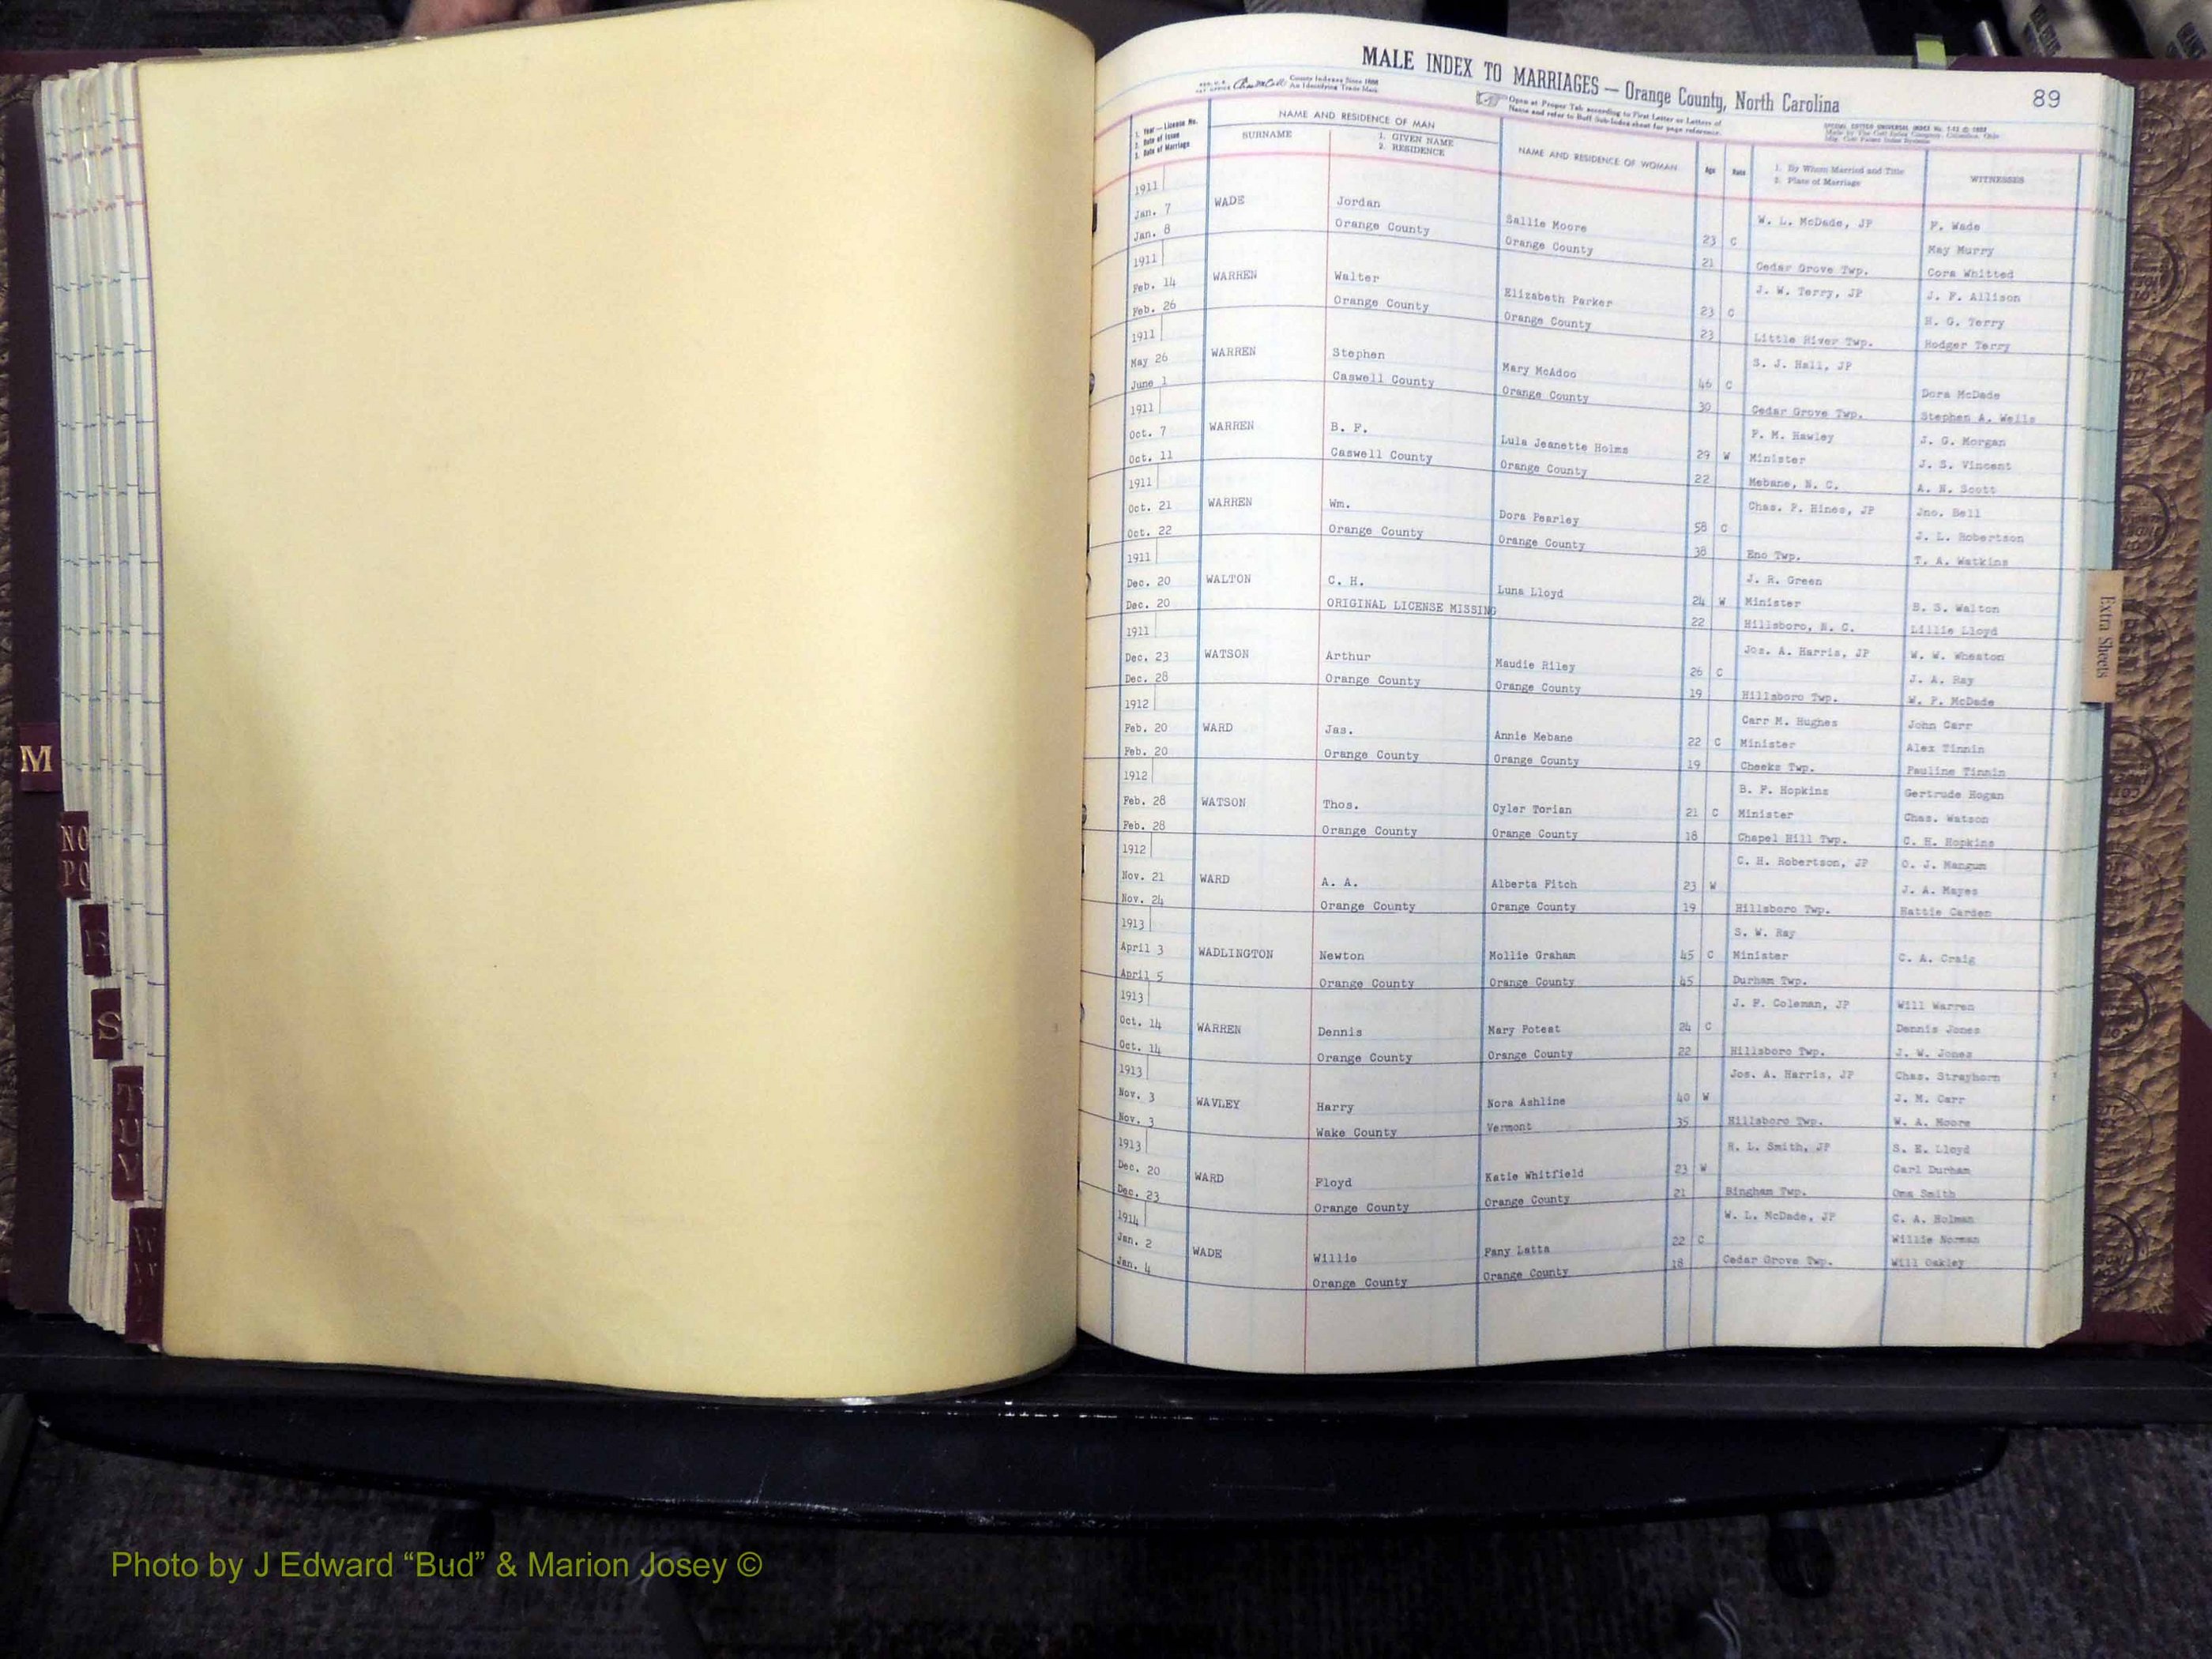 MALE INDEX TO MARRIAGES — Orange County, North Carolina
89
County Indexes Since 1888
An Identifying Trade Mark
Open at Proper Tab according to First Letter or Letters of
Name and refer to Buff Sub-Index sheet for page reference.
1. Year — License No.
2. Date of Issue
3. Date of Marriage
NAME AND RESIDENCE OF MAN
SURNAME
1. GIVEN NAME
2. RESIDENCE
NAME AND RESIDENCE OF WOMAN
Age
Race
1. By Whom Married and Title
2. Place of Marriage
WITNESSES
1911
W. L. McDade, JP F. Wade
Jan. 7 WADE Jordan Sallie Moore 23 C May Murry
Jan. 8 Orange County Orange County 21 Cedar Grove Twp. Cora Whitted
1911 J. W. Terry, JP J. F. Allison
Feb. 14 WARREN Walter Elizabeth Parker 23 C H. G. Terry
Feb. 26 Orange County Orange County 23 Little River Twp. Hodger Terry
1911 S. J. Hall, JP
May 26 WARREN Stephen Mary McAdoo 46 C Dora McDade
June 1 Caswell County Orange County 30 Cedar Grove Twp. Stephen A. Wells
1911 F. M. Hawley J. G. Morgan
Oct. 7 WARREN B. F. Lula Jeanette Holms 29 W Minister J. S. Vincent
Oct. 11 Caswell County Orange County 22 Mebane, N. C. A. N. Scott
1911 Chas. P. Hines, JP Jno. Bell
Oct. 21 WARREN Wm. Dora Pearley 58 C J. L. Robertson
Oct. 22 Orange County Orange County 38 Eno Twp. T. A. Watkins
1911 J. R. Green
Dec. 20 WALTON C. H. Luna Lloyd 24 W Minister B. S. Walton
Dec. 20 ORIGINAL LICENSE MISSING 22 Hillsboro, N. C. Lillie Lloyd
1911 Jos. A. Harris, JP W. W. Wheaton
Dec. 23 WATSON Arthur Maudie Riley 26 C J. A. Ray
Dec. 28 Orange County Orange County 19 Hillsboro Twp. W. P. McDade
1912 Carr M. Hughes John Carr
Feb. 20 WARD Jas. Annie Mebane 22 C Minister Alex Tinnin
Feb. 20 Orange County Orange County 19 Cheeks Twp. Pauline Tinnin
1912 B. F. Hopkins Gertrude Hogan
Feb. 28 WATSON Thos. Oyler Torian 21 C Minister Chas. Watson
Feb. 28 Orange County Orange County 18 Chapel Hill Twp. C. H. Hopkins
1912 C. H. Robertson, JP O. J. Mangum
Nov. 21 WARD A. A. Alberta Fitch 23 W J. A. Mayes
Nov. 24 Orange County Orange County 19 Hillsboro Twp. Hattie Carden
1913 S. W. Ray
April 3 WADLINGTON Newton Mollie Graham 45 C Minister C. A. Craig
April 5 Orange County Orange County 45 Durham Twp.
1913 J. F. Coleman, JP Will Warren
Oct. 14 WARREN Dennis Mary Poteat 24 C Dennis Jones
Oct. 14 Orange County Orange County 22 Hillsboro Twp. J. W. Jones
1913 Jos. A. Harris, JP Chas. Strayhorn
Nov. 3 WAVLEY Harry Nora Ashline 40 W J. M. Carr
Nov. 3 Wake County Vermont 35 Hillsboro Twp. W. A. Moore
1913 R. L. Smith, JP S. E. Lloyd
Dec. 20 WARD Floyd Katie Whitfield 23 W Carl Durham
Dec. 23 Orange County Orange County 21 Bingham Twp. Oma Smith
1914 W. L. McDade, JP C. A. Holman
Jan. 2 WADE Willie Fany Latta 22 C Willie Norman
Jan. 4 Orange County Orange County 18 Cedar Grove Twp. Will Oakley
Extra Sheets
M
NO
PQ
R
S
T
U
V
W
Photo by J Edward “Bud” & Marion Josey ©